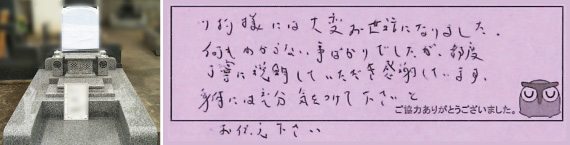 様には大変お世話になりました。
何もわからない事ばかりでしたが、都度
丁寧に説明していただき感謝しています。
身体には充分気をつけて下さいと
ご協力ありがとうございました。
お伝え下さい